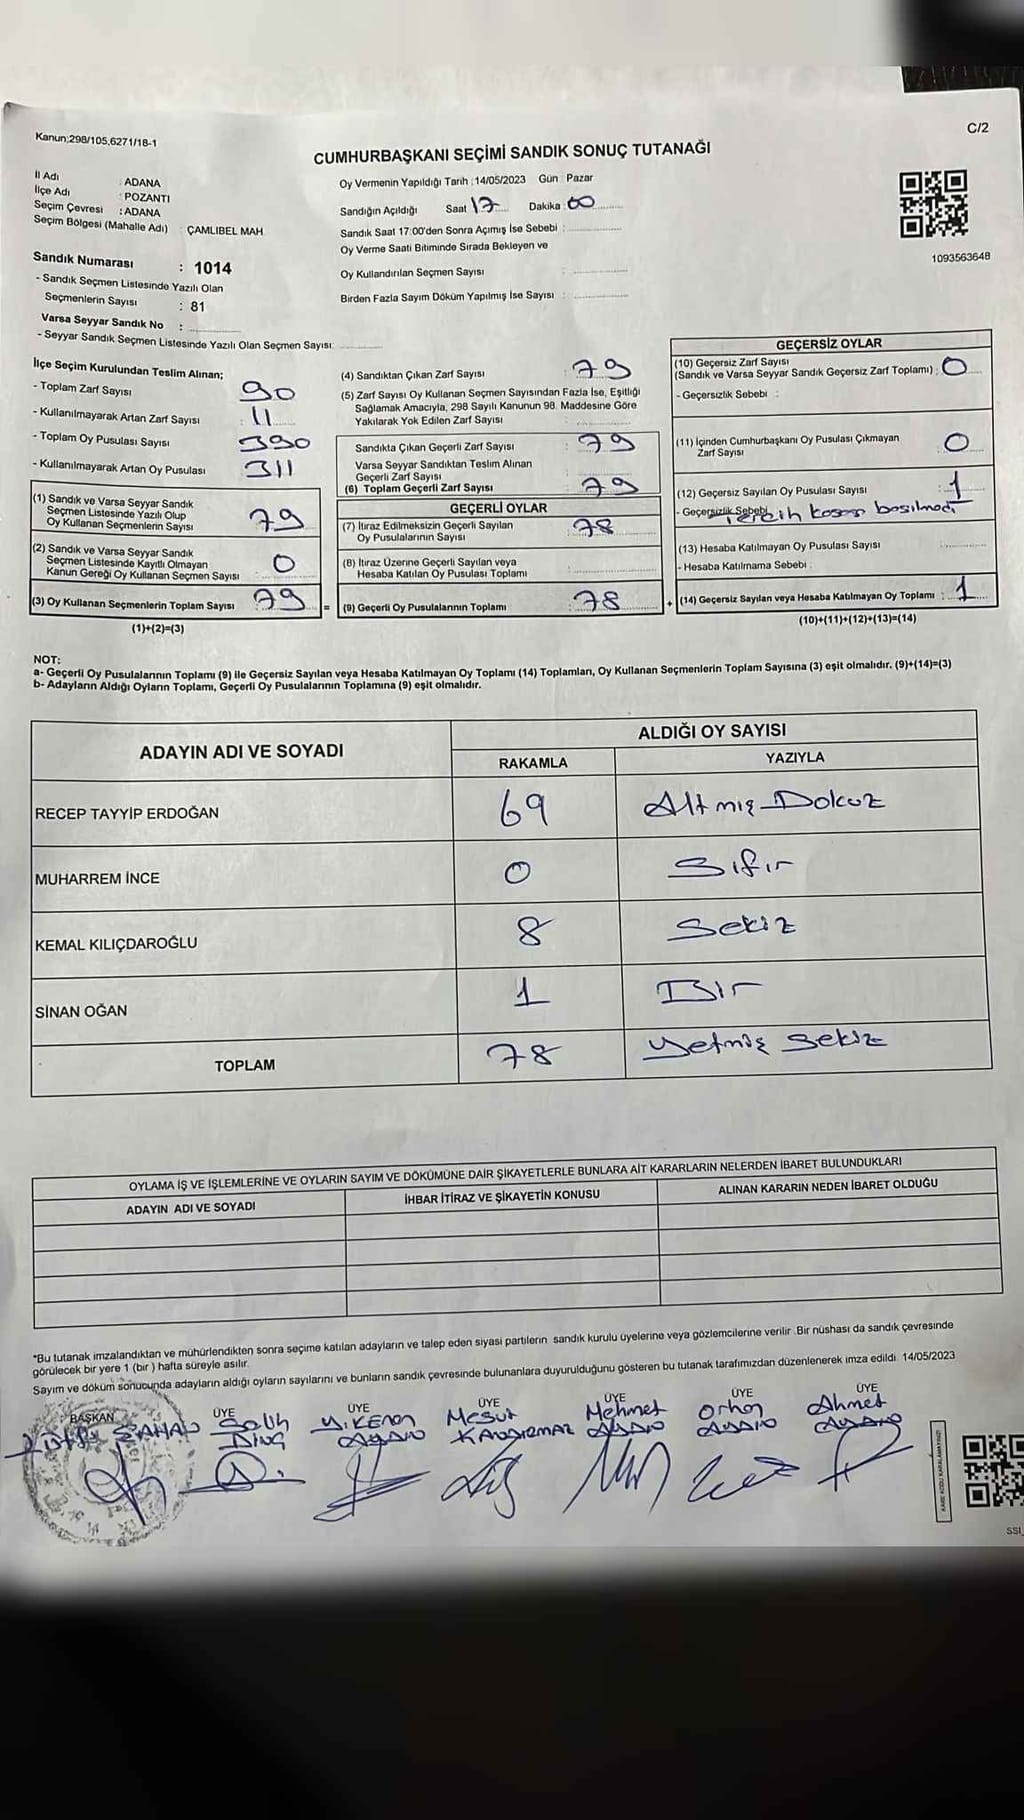 Kanun;298/105,6271/18-1
C/2
CUMHURBAŞKANI SEÇİMİ SANDIK SONUÇ TUTANAĞI
İl Adı : ADANA
İlçe Adı : POZANTI
Seçim Çevresi : ADANA
Seçim Bölgesi (Mahalle Adı) : ÇAMLIBEL MAH.
Sandık Numarası : 1014
- Sandık Seçmen Listesinde Yazılı Olan
Seçmenlerin Sayısı : 81
Varsa Seyyar Sandık No :
- Seyyar Sandık Seçmen Listesinde Yazılı Olan Seçmen Sayısı:
Oy Vermenin Yapıldığı Tarih : 14/05/2023 Gün : Pazar
Sandığın Açıldığı Saat 17 Dakika : 00
Sandık Saat 17:00'den Sonra Açımış İse Sebebi :
Oy Verme Saati Bitiminde Sırada Bekleyen ve
Oy Kullandırılan Seçmen Sayısı :
Birden Fazla Sayım Döküm Yapılmış İse Sayısı :
1093563648
İlçe Seçim Kurulundan Teslim Alınan;
- Toplam Zarf Sayısı : 90
- Kullanılmayarak Artan Zarf Sayısı : 11
- Toplam Oy Pusulası Sayısı : 390
- Kullanılmayarak Artan Oy Pusulası 311
(1) Sandık ve Varsa Seyyar Sandık
Seçmen Listesinde Yazılı Olup
Oy Kullanan Seçmenlerin Sayısı 79
(2) Sandık ve Varsa Seyyar Sandık
Seçmen Listesinde Kayıtlı Olmayan
Kanun Gereği Oy Kullanan Seçmen Sayısı : 0
(3) Oy Kullanan Seçmenlerin Toplam Sayısı 79 =
(1)+(2)=(3)
(4) Sandıktan Çıkan Zarf Sayısı : 79
(5) Zarf Sayısı Oy Kullanan Seçmen Sayısından Fazla İse, Eşitliği
Sağlamak Amacıyla, 298 Sayılı Kanunun 98. Maddesine Göre
Yakılarak Yok Edilen Zarf Sayısı :
Sandıkta Çıkan Geçerli Zarf Sayısı : 79
Varsa Seyyar Sandıktan Teslim Alınan
Geçerli Zarf Sayısı :
(6) Toplam Geçerli Zarf Sayısı : 79
GEÇERLİ OYLAR
(7) İtiraz Edilmeksizin Geçerli Sayılan
Oy Pusulalarının Sayısı : 78
(8) İtiraz Üzerine Geçerli Sayılan veya
Hesaba Katılan Oy Pusulası Toplamı :
(9) Geçerli Oy Pusulalarının Toplamı : 78 +
GEÇERSİZ OYLAR
(10) Geçersiz Zarf Sayısı
(Sandık ve Varsa Seyyar Sandık Geçersiz Zarf Toplamı) : 0
- Geçersizlik Sebebi :
(11) İçinden Cumhurbaşkanı Oy Pusulası Çıkmayan
Zarf Sayısı : 0
(12) Geçersiz Sayılan Oy Pusulası Sayısı : 1
- Geçersizlik Sebebi : Tercih kasesi basılmadı
(13) Hesaba Katılmayan Oy Pusulası Sayısı :
- Hesaba Katılmama Sebebi :
(14) Geçersiz Sayılan veya Hesaba Katılmayan Oy Toplamı : 1
(10)+(11)+(12)+(13)=(14)
NOT:
a- Geçerli Oy Pusulalarının Toplamı (9) ile Geçersiz Sayılan veya Hesaba Katılmayan Oy Toplamı (14) Toplamları, Oy Kullanan Seçmenlerin Toplam Sayısına (3) eşit olmalıdır. (9)+(14)=(3)
b- Adayların Aldığı Oyların Toplamı, Geçerli Oy Pusulalarının Toplamına (9) eşit olmalıdır.
ADAYIN ADI VE SOYADI ALDIĞI OY SAYISI
RAKAMLA YAZIYLA
RECEP TAYYİP ERDOĞAN 69 Altmış Dokuz
MUHARREM İNCE 0 Sıfır
KEMAL KILIÇDAROĞLU 8 Sekiz
SİNAN OĞAN 1 Bir
TOPLAM 78 Yetmiş Sekiz
OYLAMA İŞ VE İŞLEMLERİNE VE OYLARIN SAYIM VE DÖKÜMÜNE DAİR ŞİKAYETLERLE BUNLARA AİT KARARLARIN NELERDEN İBARET BULUNDUKLARI
ADAYIN ADI VE SOYADI İHBAR İTİRAZ VE ŞİKAYETİN KONUSU ALINAN KARARIN NEDEN İBARET OLDUĞU
*Bu tutanak imzalandıktan ve mühürlendikten sonra seçime katılan adayların ve talep eden siyasi partilerin sandık kurulu üyelerine veya gözlemcilerine verilir. Bir nüshası da sandık çevresinde
görülecek bir yere 1 (bir ) hafta süreyle asılır.
Sayım ve döküm sonucunda adayların aldığı oyların sayılarını ve bunların sandık çevresinde bulunanlara duyurulduğunu gösteren bu tutanak tarafımızdan düzenlenerek imza edildi. 14/05/2023
BAŞKAN ÜYE ÜYE ÜYE ÜYE ÜYE ÜYE
Salih Mesut Mehmet Orhan Ahmet
DİNÇ AYDIN AYDIN AYDIN AYDIN
KARE KODU KARALAMAYINIZ!
SSI_